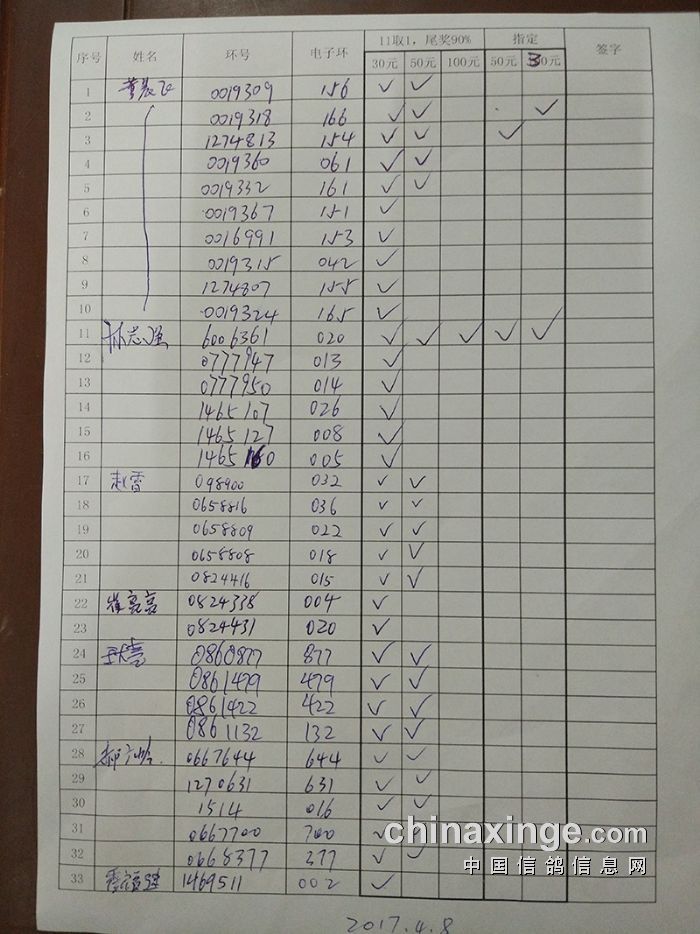 11取1，尾奖90% 指定
序号 姓名 环号 电子环 30元 50元 100元 50元 30元 签字
1 0019309 156 ✓ ✓
2 0019318 166 ✓ ✓ ✓
3 1274813 154 ✓ ✓ ✓
4 0019360 061 ✓ ✓
5 0019332 161 ✓ ✓
6 0019367 151 ✓
7 0016991 153 ✓
8 0019315 042 ✓
9 1274807 155 ✓
10 0019324 165 ✓
11 孙志强 6006361 020 ✓ ✓ ✓ ✓ ✓
12 0777947 013 ✓
13 0777950 014 ✓
14 1465107 026 ✓
15 1465127 008 ✓
16 1465160 005 ✓
17 赵雷 098900 032 ✓ ✓
18 0658816 036 ✓ ✓
19 0658809 022 ✓ ✓
20 0658808 018 ✓ ✓
21 0824416 015 ✓ ✓
22 崔亮亮 0824338 004 ✓
23 0824431 020 ✓
24 0860877 877 ✓ ✓
25 0861479 479 ✓ ✓
26 0861422 422 ✓ ✓
27 0861132 132 ✓ ✓
28 0667644 644 ✓ ✓
29 1270631 631 ✓ ✓
30 1514 016 ✓ ✓
31 0667700 700 ✓
32 0668377 377 ✓ ✓
33 1469511 002 ✓
chinaxinge.com
中国信鸽信息网
2017.4.8